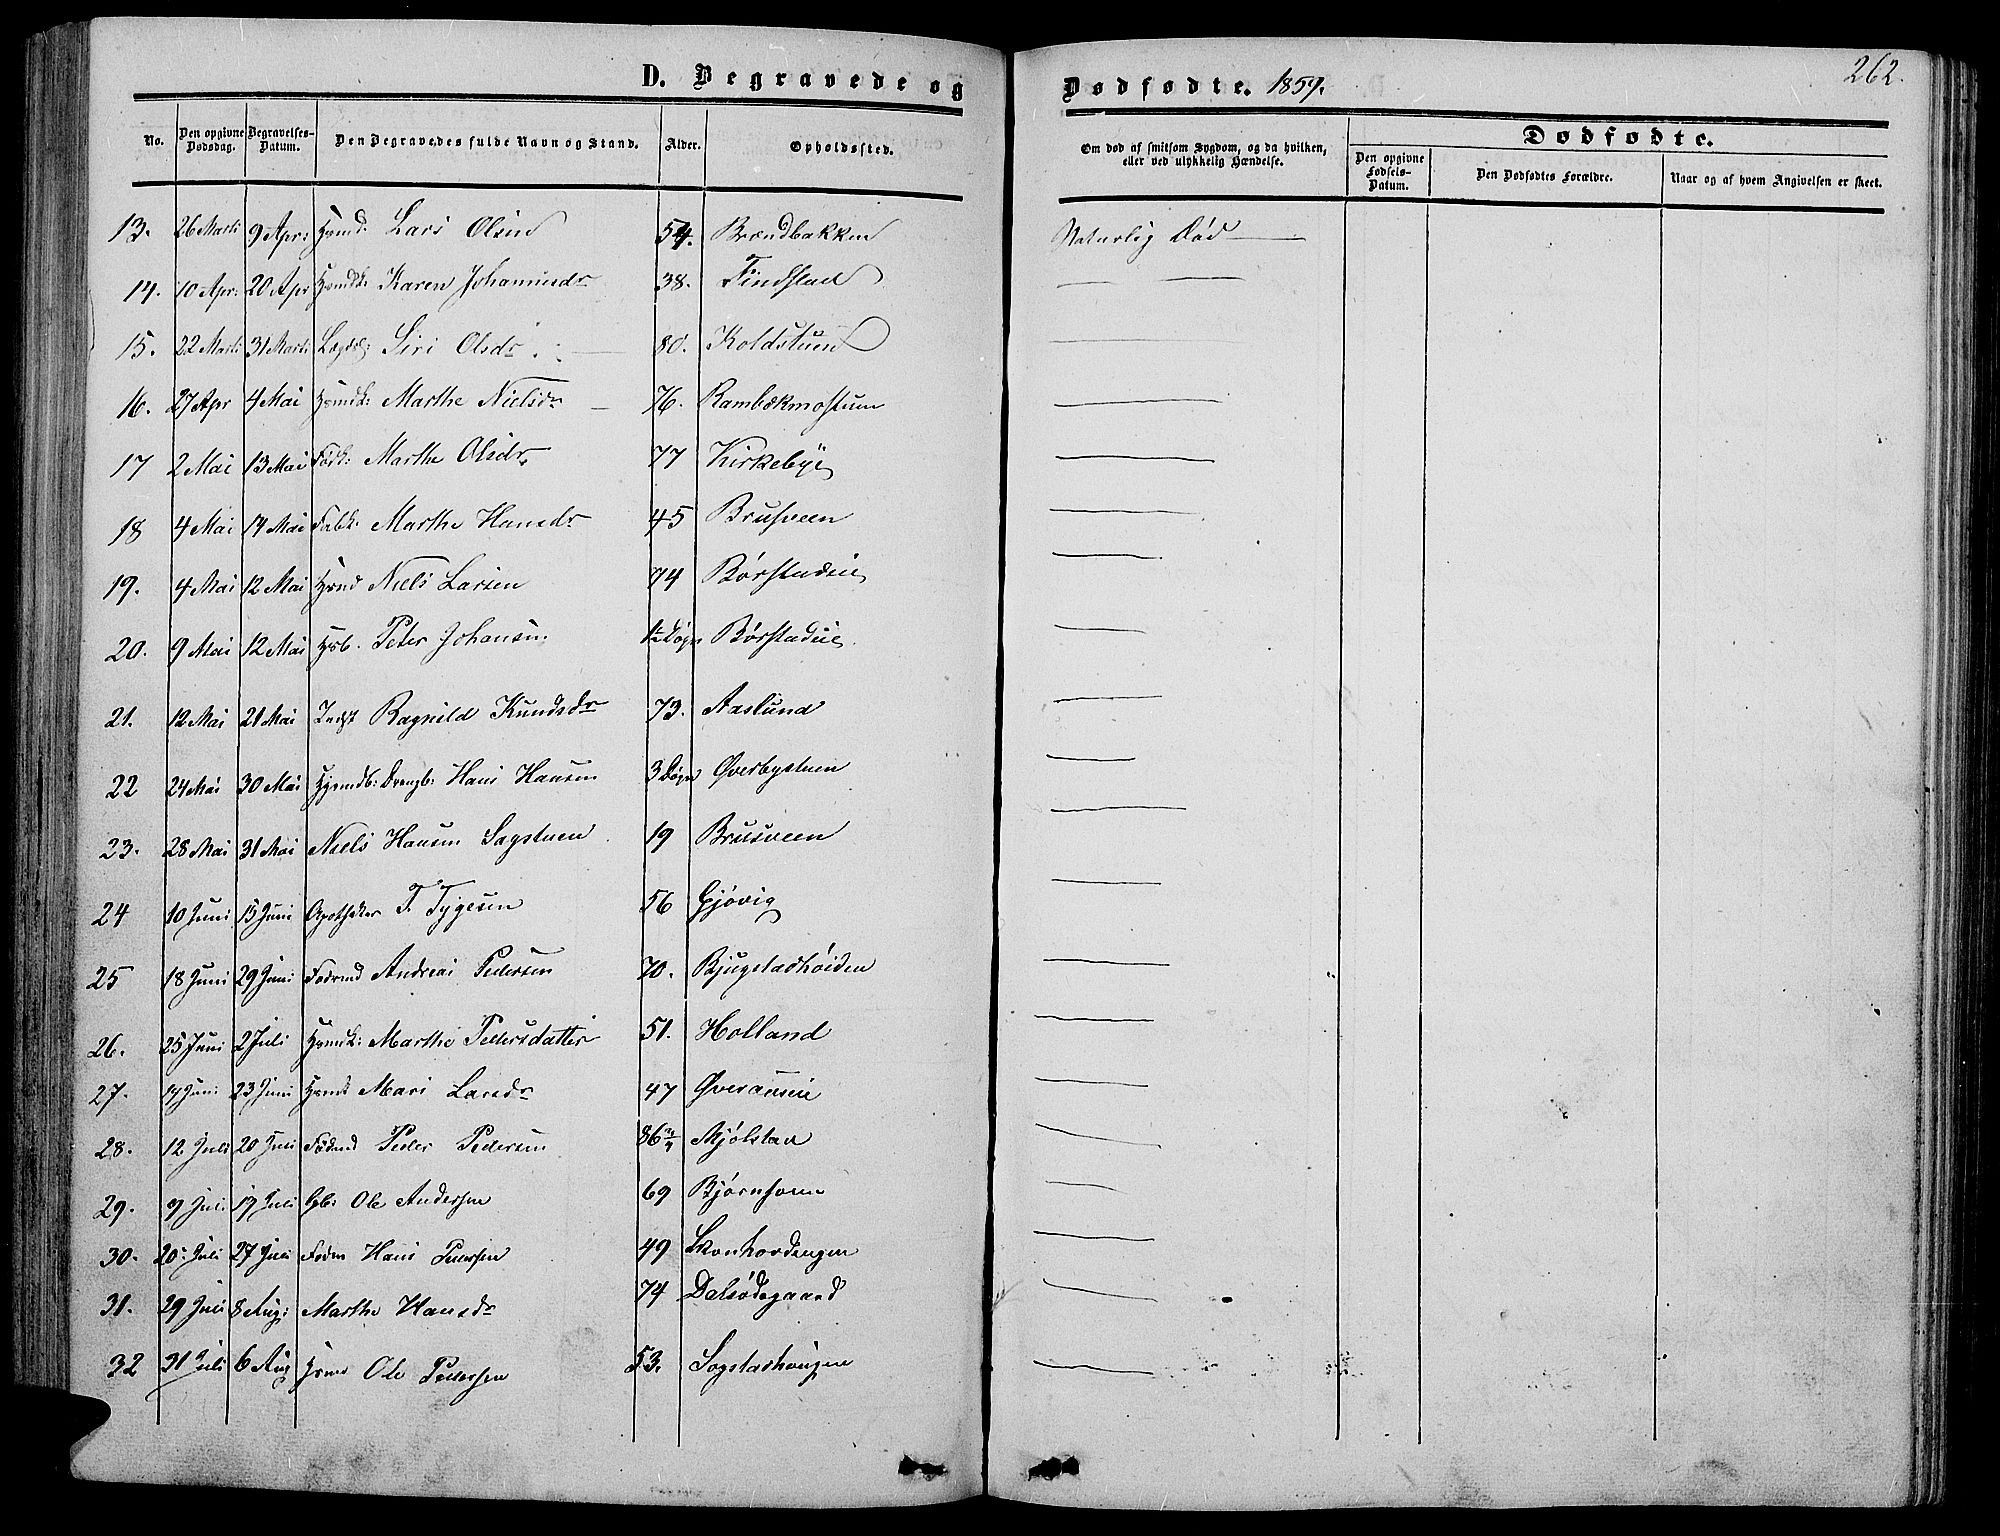 D. Begravede og Dødfødte. 1859. 262.
No. Den opgivne Dødsdag. Begravelses-Datum. Den Begravedes fulde Navn og Stand. Alder. Opholdssted. Om død af smitsom Sygdom, og da hvilken, eller ved ulykkelig Hændelse. Dødfødte. Den opgivne Fødsels-Datum. Den Dødfødtes Forældre. Naar og af hvem Angivelsen er skeet.
13. 26 Marti 9 Apr: Hsmd: Lars Olsen 54. Brændbakken Naturlig Død
14. 10 Apr: 20 Apr Hsmdsk: Karen Johannesdr 38. Findstad
15. 22 Marti 31 Marti Lægdslj Siri Olsdr 80. Koldstuen
16. 27 Apr 4 Mai Hsmdk: Marthe Nielsdr 76. Rambækmostuen
17 2 Mai 13 Mai Førk: Marthe Olsdr 77 Kirkebye
18 4 Mai 14 Mai Marthe Hansdr 45 Brusveen
19. 4 Mai 12 Mai Hsmd Niels Larsen 74 Børstadeie
20. 9 Mai 12 Mai Hsb. Peter Johansen 1½ Døgn Børstadeie
21. 12 Mai 21 Mai Indst Ragnild Knudsdr 73. Aaslund
22 24 Mai 30 Mai Hjsmdb: Drengb: Hans Hansen 3 Døgn Øverbystuen
23. 28 Mai 31 Mai Niels Hansen Sagstuen 19 Brusveen
24 10 Juni 15 Juni Apotheker F. Tygesen 56 Gjøvig
25 18 Juni 29 Juni Føđrmd Andreas Pedersen 70. Bjugstadhøiden
26. 25 Juni 2 Juli Hsmdk: Marthe Pedersdatter 51. Holland
27. 14 Juni 23 Juni Mari Larsdr 47 Øveraaseie
28. 12 Juli 20 Juli Peder Pedersen 86 Mjølstad
29. 9 Juli 19 Juli Gbr Ole Andersen 69 Bjørnsveen
30. 20 Juli 27 Juli Hans Pedersen 49 Skonhovdengen
31. 29 Juli 8 Aug: Marthe Hansdr 74 Dalsødegaard
32 31 Juli 6 Aug Hsmd Ole Pedersen 53. Sogstadhaugen